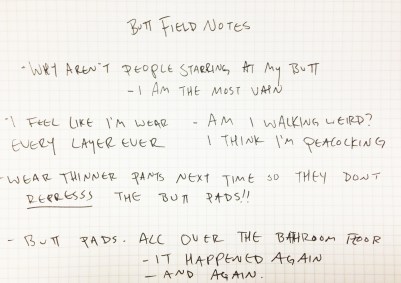 BUTT FIELD NOTES
- WHY AREN'T PEOPLE STARRING AT MY BUTT
- I AM THE MOST VAIN
- I FEEL LIKE I'M WEAR
EVERY LAYER EVER
- AM I WALKING WEIRD?
I THINK I'M PEACOCKING
- WEAR THINNER PANTS NEXT TIME SO THEY DONT
REPRESSS THE BUTT PADS!!
- BUTT PADS. ALL OVER THE BATHROOM FLOOR
- IT HAPPENED AGAIN
- AND AGAIN.